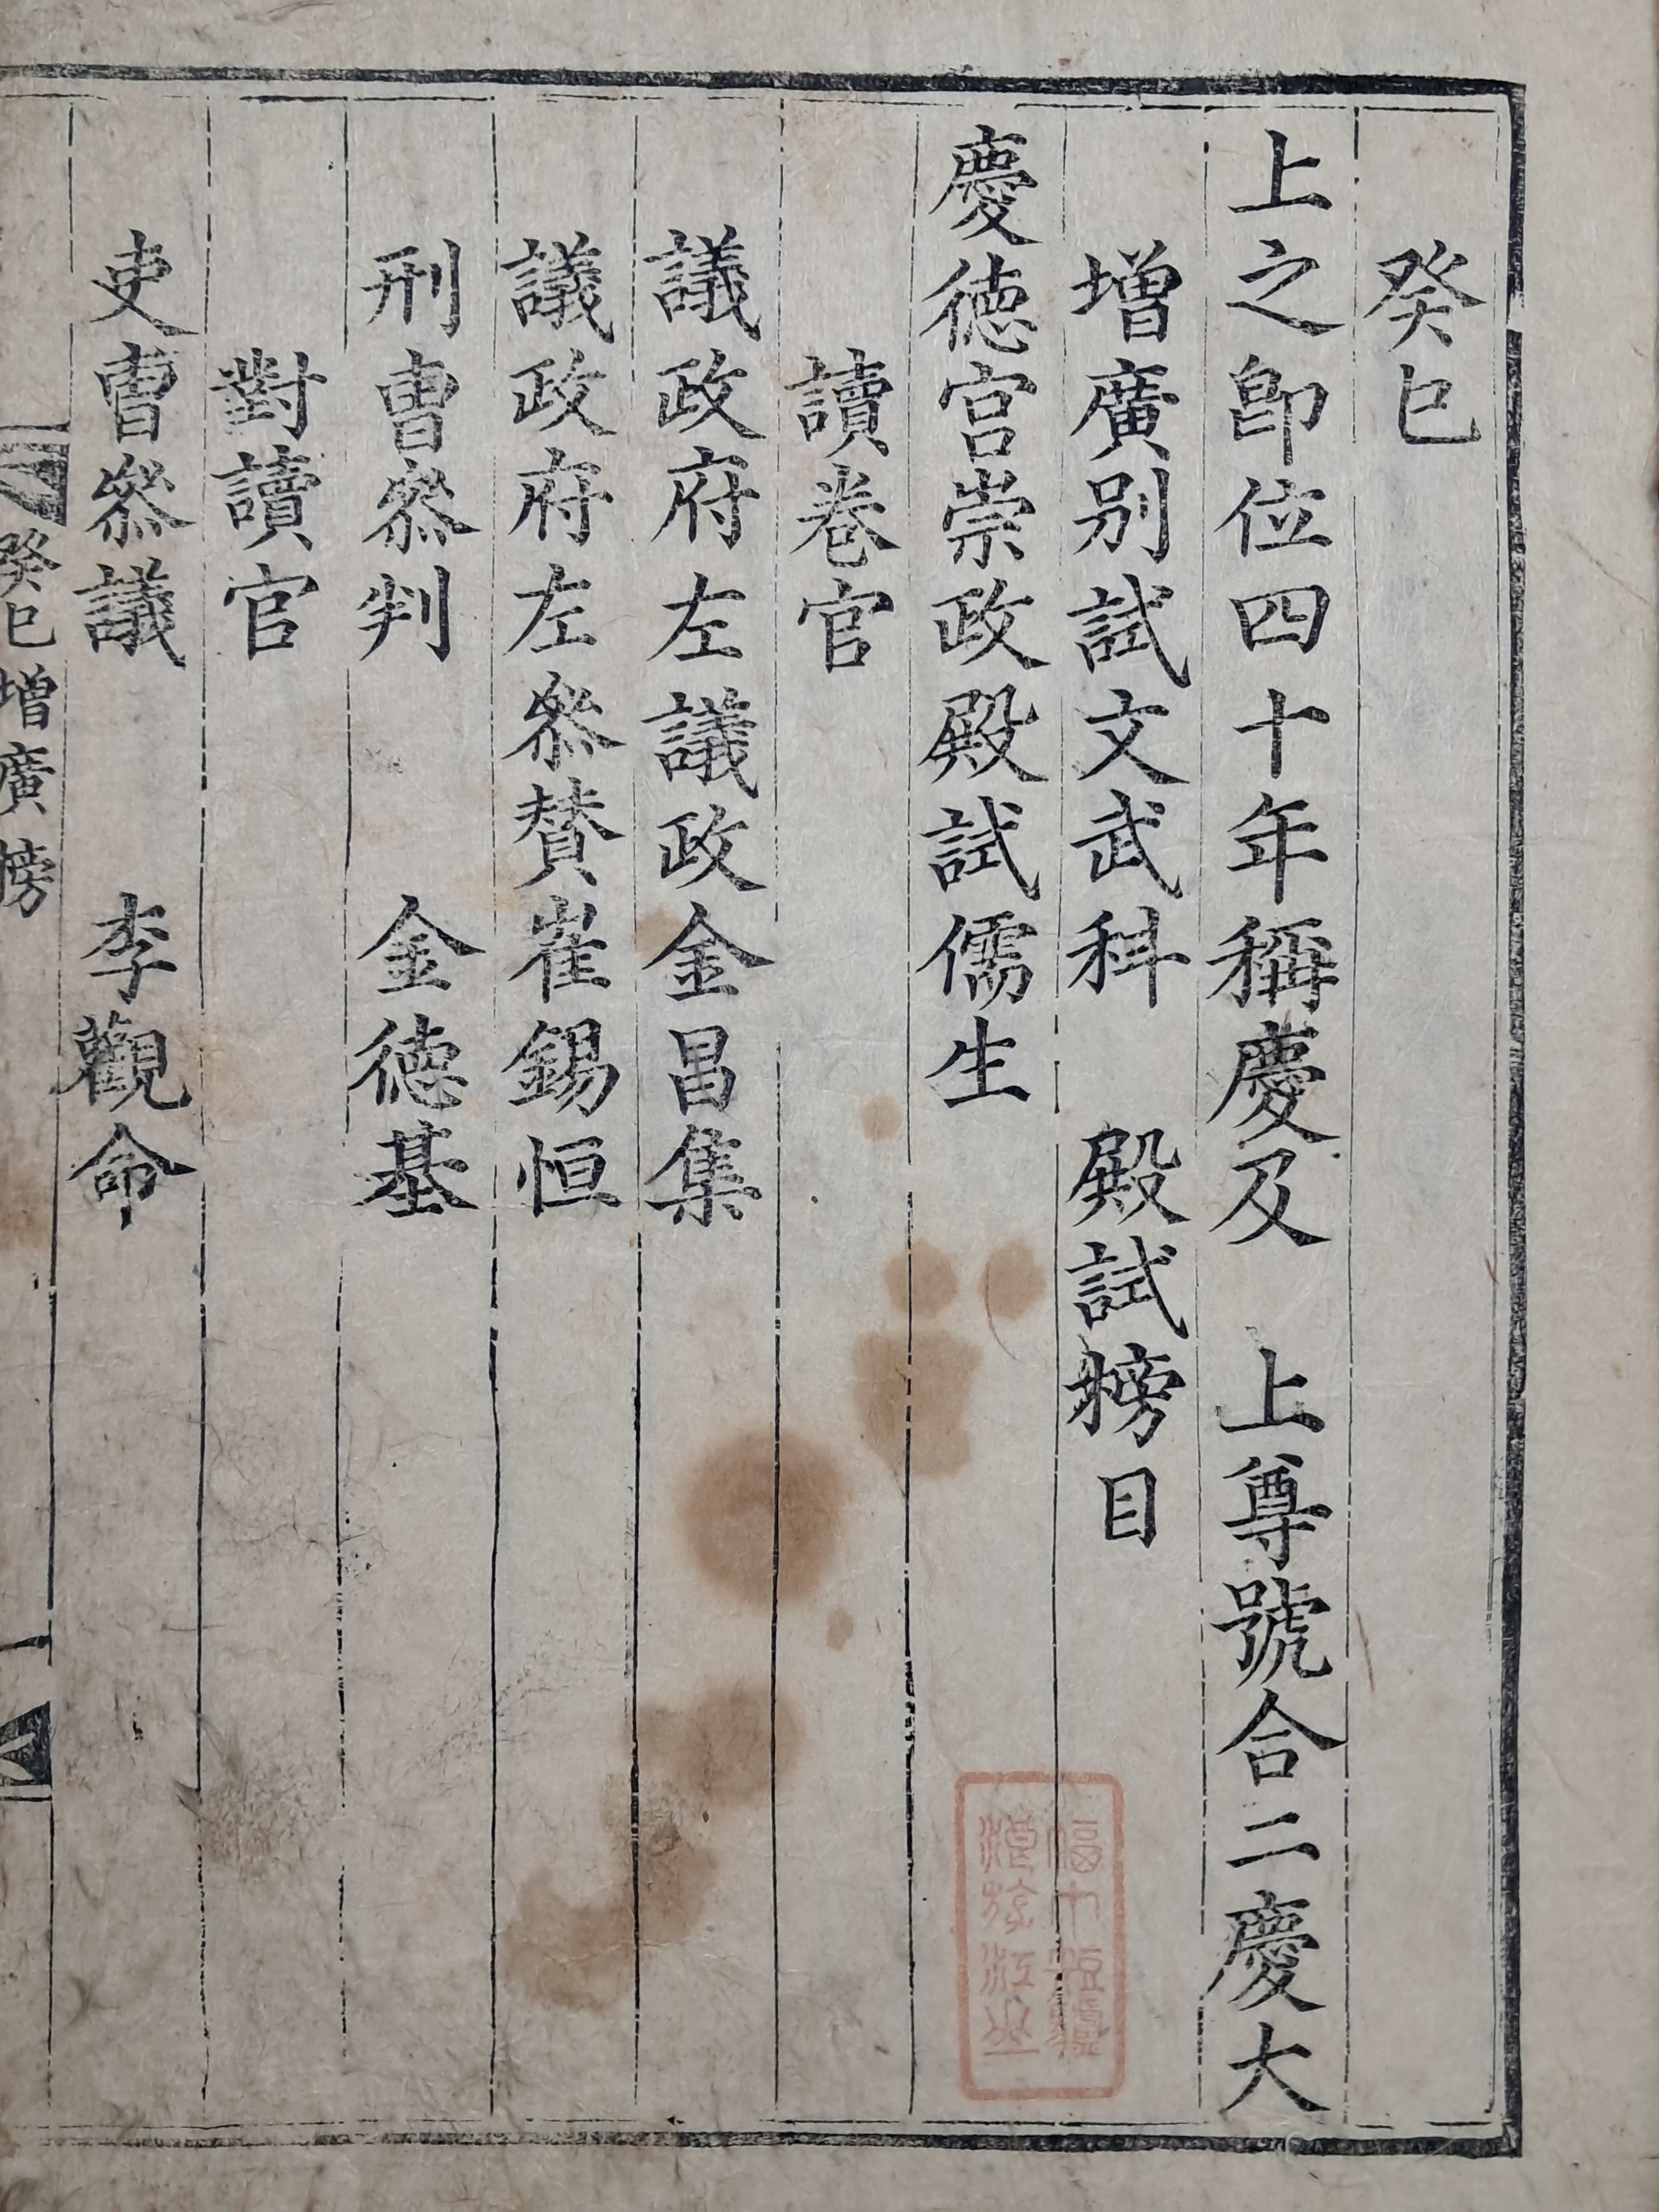 癸巳
上之卽位四十年稱慶及　上尊號合二慶大
增廣别試文武科　殿試榜目
慶徳宮崇政殿試儒生
讀卷官
議政府左議政金昌集
議政府左叅賛崔錫恒
刑曺叅判　　金徳基
對讀官
吏曺叅議　　李觀命
癸巳增廣榜